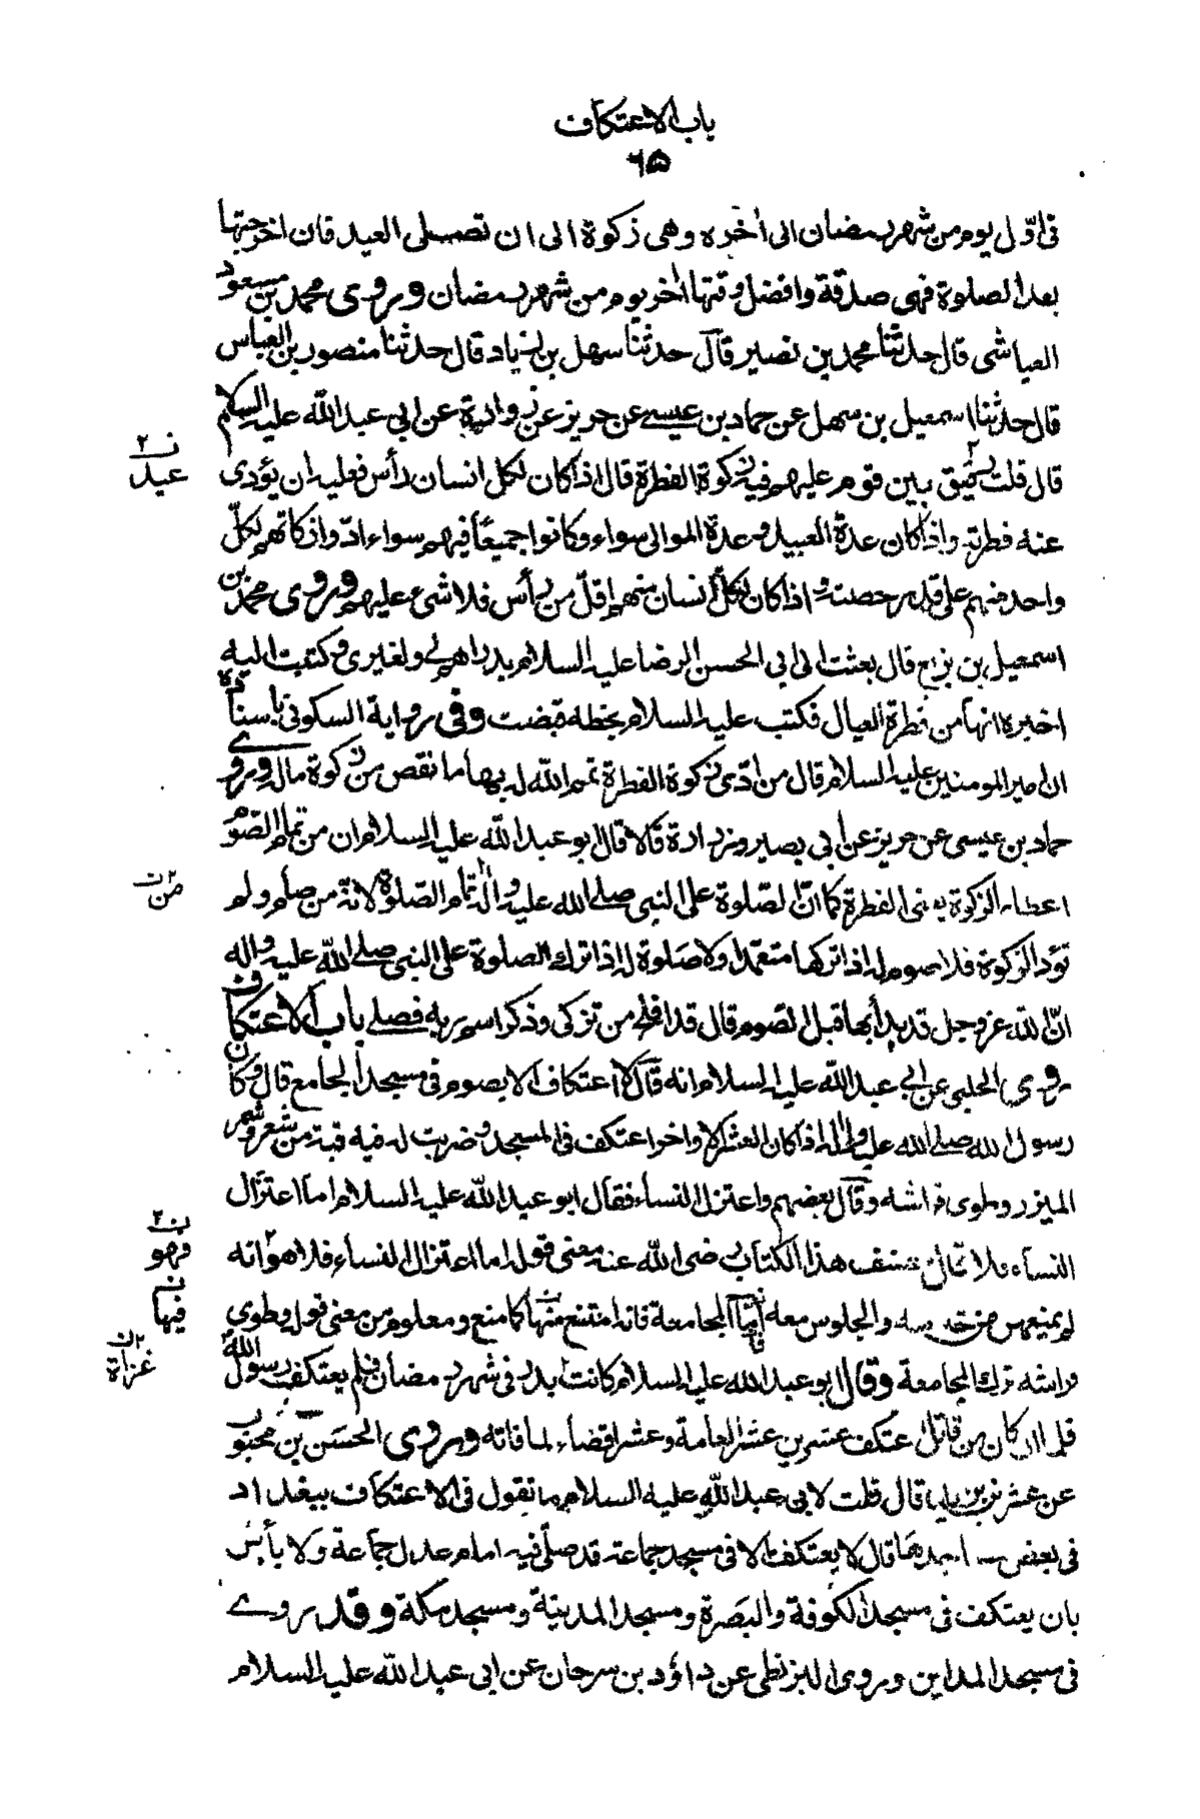 باب الاعتكاف
٦٥
فى اوّل يوم من شهر رمضان الى اٰخره وهى زكوة الى ان تصلى العيد فان اخرجتها
بعد الصلوة فهى صدقة وافضل وقتها اٰخر يوم من شهر رمضان وروى محمد بن مسعود
العياشى قال حدثنا محمد بن نصير قال حدثنا سهل بن زياد قال حدثنا منصور بن العباس
قال حدثنا اسمعيل بن سهل عن حماد بن عيسى عن حريز عن زرارة عن ابى عبد الله عليه السلام
قال قلت رقيق بين قوم عليهم فيه زكوة الفطرة قال اذا كان لكل انسان رأس فعليه ان يؤدى
عنه فطرته واذا كان عدة العبيد وعدة الموالى سواء وكانوا جميعًا فيهم سواء ادّوا زكاتهم لكلّ
واحد منهم على قدر حصته واذا كان لكلّ انسان منهم اقلّ من رأس فلا شىء عليهم وروى محمد بن
اسمعيل بن بزيع قال بعثت الى ابى الحسن الرضا عليه السلام بدراهم لى ولغيرى وكتبت اليه
اخبره انها من فطرة العيال فكتب عليه السلام بخطه قبضت وفى رواية السكونى باسناده
ان امير المومنين عليه السلام قال من ادّى زكوة الفطرة تمم الله له بها ما نقص من زكوة ماله وروى
حماد بن عيسى عن حريز عن ابى بصير وزرارة قالا قال ابو عبد الله عليه السلام ان من تمام الصّوم
اعطاء الزكوة يعنى الفطرة كما انّ الصّلوة على النبى صلى الله عليه واٰله تمام الصّلوة لانّه من صام ولم
تؤد الزكوة فلا صوم له اذا تركها متعمدا ولا صلوة له اذا ترك الصلوة على النبى صلى الله عليه واله
انّ الله عز وجل قد بدأ بها قبل الصوم قال قد افلح من تزكى وذكر اسم ربه فصلى باب الاعتكاف
روى الحلبى عن ابى عبد الله عليه السلام انه قال لا اعتكاف الا بصوم فى مسجد الجامع قال وكان
رسول الله صلى الله عليه واٰله اذا كان العشر الاواخر اعتكف فى المسجد وضربت له فيه قبة من شعر وشمر
الميزر وطوى فراشه وقال بعضهم واعتزل النساء فقال ابو عبد الله عليه السلام اما اعتزال
النساء فلا قال مصنف هذا الكتاب رضى الله عنه معنى قوله اما اعتزال النساء فلا هو انه
لم يمنعهن من خدمته والجلوس معه فاما المجامعة فانه امتنع منها كما منع ومعلوم من معنى قوله وطوى
فراشه ترك المجامعة وقال ابو عبد الله عليه السلام كانت بدر فى شهر رمضان فلم يعتكف رسول الله
فلما ان كان من قابل اعتكف عشرين عشرا لعامه وعشرا قضاء لما فاته وروى الحسن بن محبوب
عن عمر بن يزيد قال قلت لابى عبد الله عليه السلام ما تقول فى الاعتكاف ببغداد
فى بعض مساجدها قال لا يعتكف الا فى مسجد جماعة قد صلّى فيه امام عدل جماعة ولا بأس
بان يعتكف فى مسجد الكوفة والبصرة ومسجد المدينة ومسجد مكة وقد روى
فى مسجد المداين وروى البزنطى عن داؤد بن سرحان عن ابى عبد الله عليه السلام
ن ٢
عبد
٢ن
من
ن ٢
فهو
ن
فيها
٢ن
غزاة